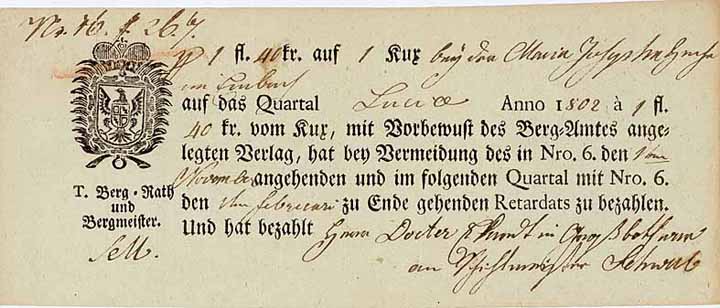 Nr. 16.
1 fl. 40 kr. auf 1 Kux bey der Maria Josepha Zeche
auf das Quartal Luciæ Anno 1802 à 1 fl.
40 kr. vom Kux, mit Vorbewust des Berg-Amtes ange-
legten Verlag, hat bey Vermeidung des in Nro. 6. den
November angehenden und im folgenden Quartal mit Nro. 6.
den Februari zu Ende gehenden Retardats zu bezahlen.
Und hat bezahlt Herrn Docter in
an Schichtmeister
T. Berg-Rath
und
Bergmeister.